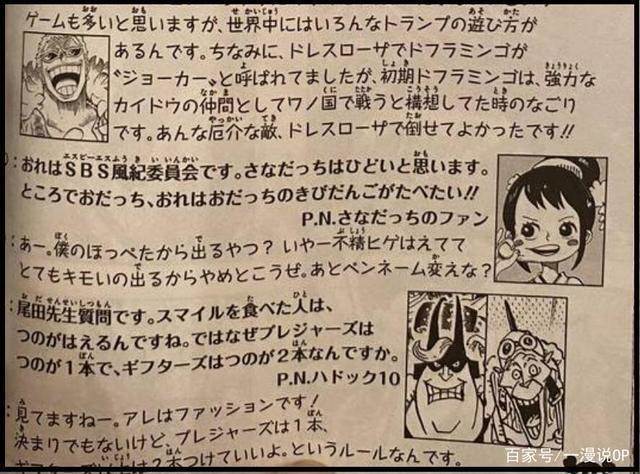 ゲームも多いと思いますが、世界中にはいろんなトランプの遊び方が
あるんです。ちなみに、ドレスローザでドフラミンゴが
“ジョーカー”と呼ばれてましたが、初期ドフラミンゴは、強力な
カイドウの仲間としてワノ国で戦うと構想してた時のなごり
です。あんな厄介な敵、ドレスローザで倒せてよかったです!!
:おれはSBS風紀委員会です。さなだっちはひどいと思います。
ところでおだっち、おれはおだっちのきびだんごがたべたい!!
P.N.さなだっちのファン
:あー。僕のほっぺたから出るやつ?いやー不精ヒゲはえてて
とてもキモいの出るからやめとこうぜ。あとペンネーム変えな?
:尾田先生質問です。スマイルを食べた人は、
つのがはえるんですね。ではなぜプレジャーズは
つのが1本で、ギフターズはつのが2本なんですか。
P.N.ハドック10
:見てますねー。アレはファッションです!
決まりでもないけど、プレジャーズは1本、
2本つけていいよ。というルールなんです。
百家号/一漫说OP